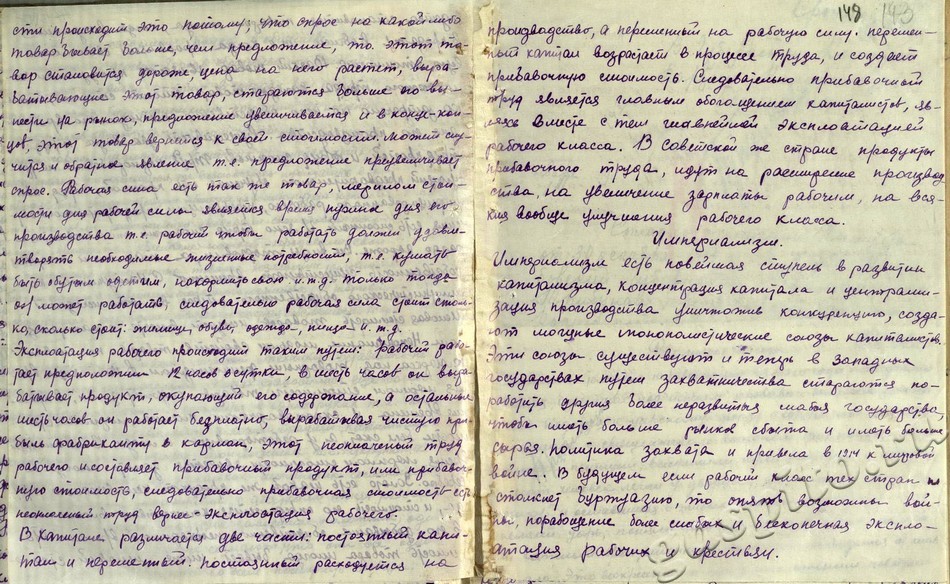 сти происходит это потому, что спрос на какой либо
товар бывает больше, чем предложение, то этот то-
вар становится дороже, цена на него растет, выра-
батывающие этот товар, стараются больше его вы-
нести на рынок, предложение увеличивается и в конце-кон-
цов, этот товар вернется к своей стоимости. Может слу-
чится и обратное явление т.е. предложение преувеличивает
спрос. Рабочая сила есть так же товар, мерилом стои-
мости для рабочей силы является время нужное для его
производства т.е. рабочий чтобы работать должен удовле-
творять необходимые жизненные потребности, т.е. кушать
быть обутым одетым, и т.д. только тогда
он может работать, следовательно рабочая сила стоит столь-
ко, сколько стоит: жилище, обувь, одежда, пища и т.д.
Эксплоатация рабочего происходит таким путем: Рабочий рабо-
тает предположим 12 часов в сутки, в шесть часов он выра-
батывает продукт, окупающий его содержание, а остальные
шесть часов он работает безплатно, вырабатывая чистую при-
быль фабриканту в карман, этот неоплаченый труд
рабочего и составляет прибавочный продукт, или прибавоч-
ную стоимость, следовательно прибавочная стоимость есть
неоплаченый труд эксплоатация рабочего.
В капитале различается две части: постоянный капи-
тал и переменный. Постоянный расходуется на
148 143
производство, а переменный на рабочую силу. Перемен-
ный капитал возрастает в процессе труда, и создает
прибавочную стоимость. Следовательно прибавочный
труд является главным обогащением капиталистов, яв-
ляясь вместе с тем главнейшей эксплоатацией
рабочего класса. В Советской же стране продукты
прибавочного труда, идут на расширение производ
ства, на увеличение зарплаты рабочим, на вся-
кия вообще улучшения рабочего класса.
Империализм.
Империализм есть новейшая ступень в развитии
капитализма, концентрация капитала и централи-
зация производства уничтожив конкуренцию, созда-
ют могучие монополистические союзы капиталистов.
Эти союзы существуют и теперь в западных
государствах путем захватничества стараются по-
работить другия более неразвитыя слабыя государства,
чтобы иметь больше рынков сбыта и иметь больше
сырья. Политика захвата и привела в 1914 к мировой
войне. В будущем если рабочий класс тех стран не
столкнет буржуазию, то опять возможны вой-
ны, порабощение более слабых и бесконечная экспло-
атация рабочих и крестьян.